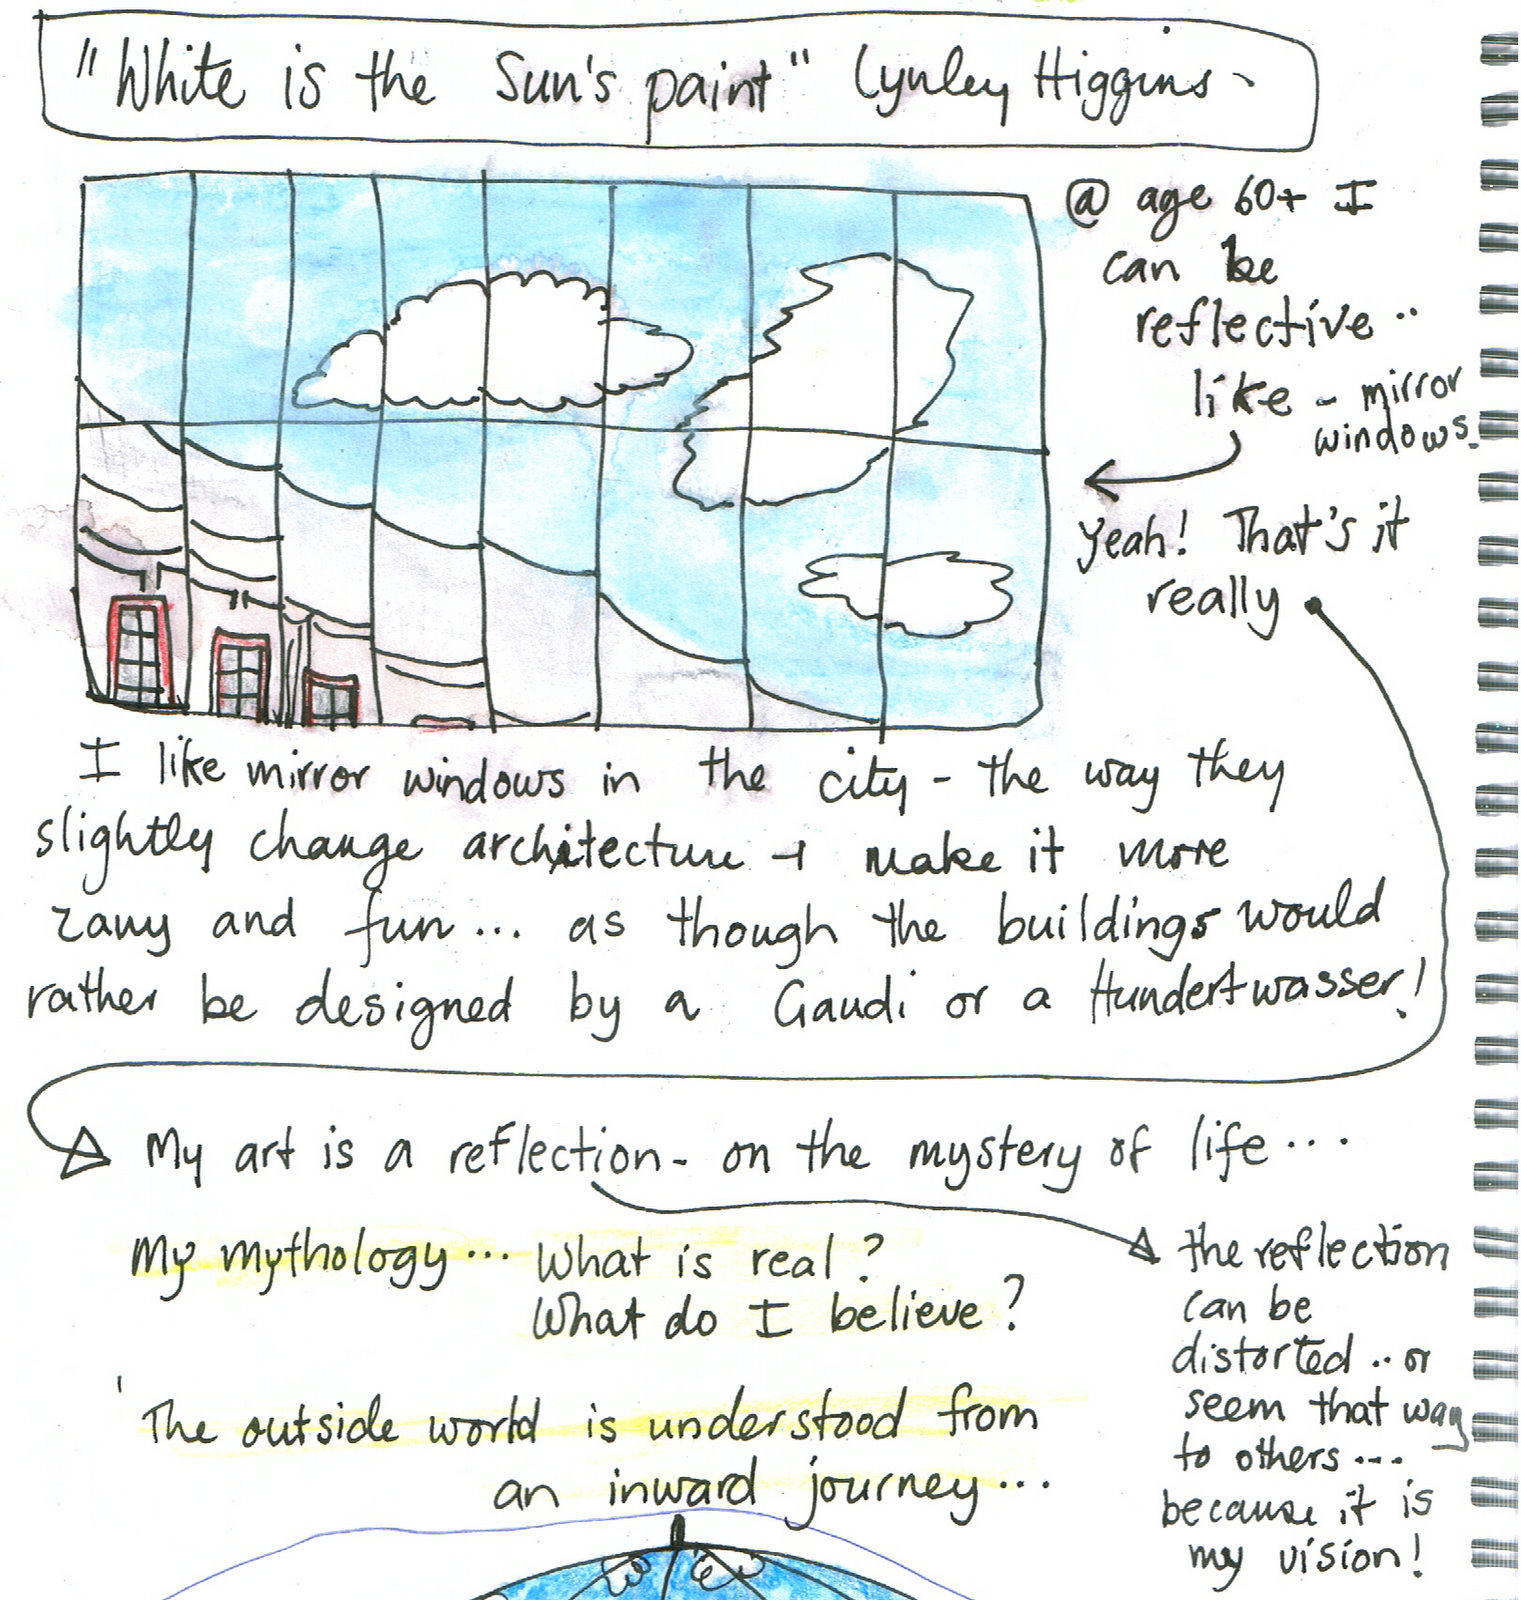 "White is the Sun's paint" Lynley Higgins -
@ age 60+ I
can be
reflective ..
like - mirror
windows.
Yeah! That's it
really
I like mirror windows in the city - the way they
slightly change architecture + make it more
zany and fun... as though the buildings would
rather be designed by a Gaudi or a Hundertwasser!
My art is a reflection - on the mystery of life ...
My mythology ... What is real?
What do I believe?
the reflection
can be
distorted .. or
seem that way
to others ...
because it is
my vision!
'The outside world is understood from
an inward journey ...